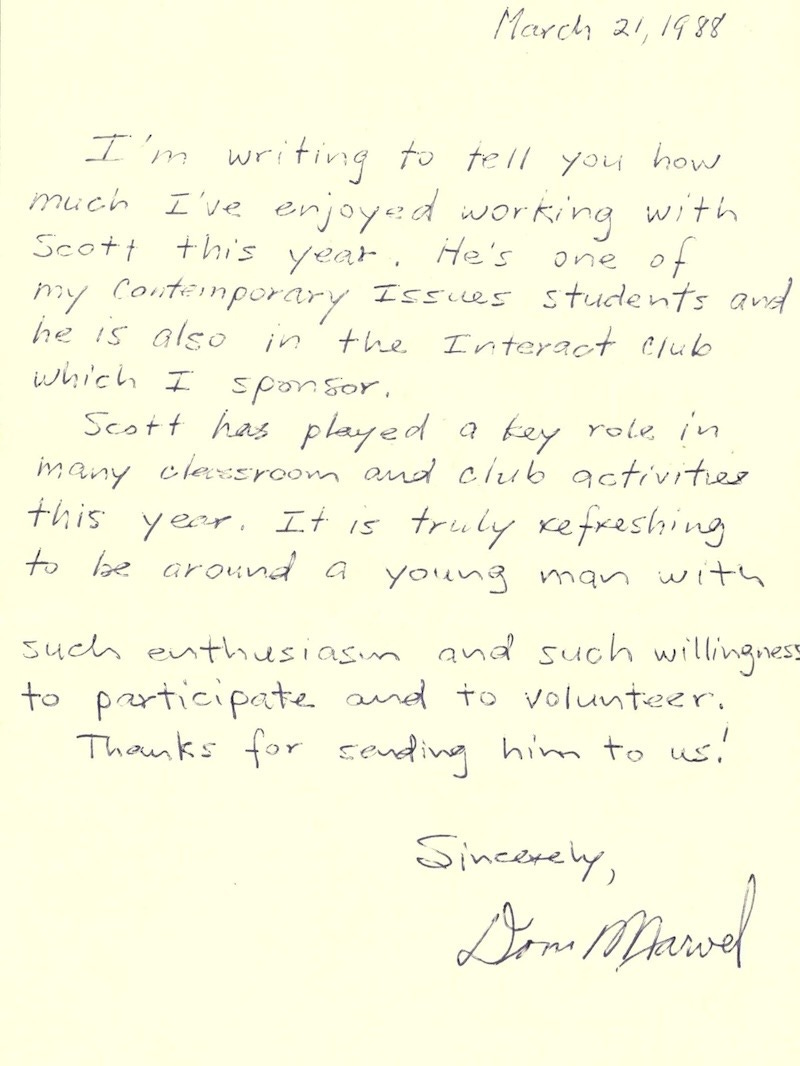 March 21, 1988
I'm writing to tell you how
much I've enjoyed working with
Scott this year. He's one of
my Contemporary Issues students and
he is also in the Interact club
which I sponsor.
Scott has played a key role in
many classroom and club activities
this year. It is truly refreshing
to be around a young man with
such enthusiasm and such willingness
to participate and to volunteer.
Thanks for sending him to us!
Sincerely,
Dom Marvel